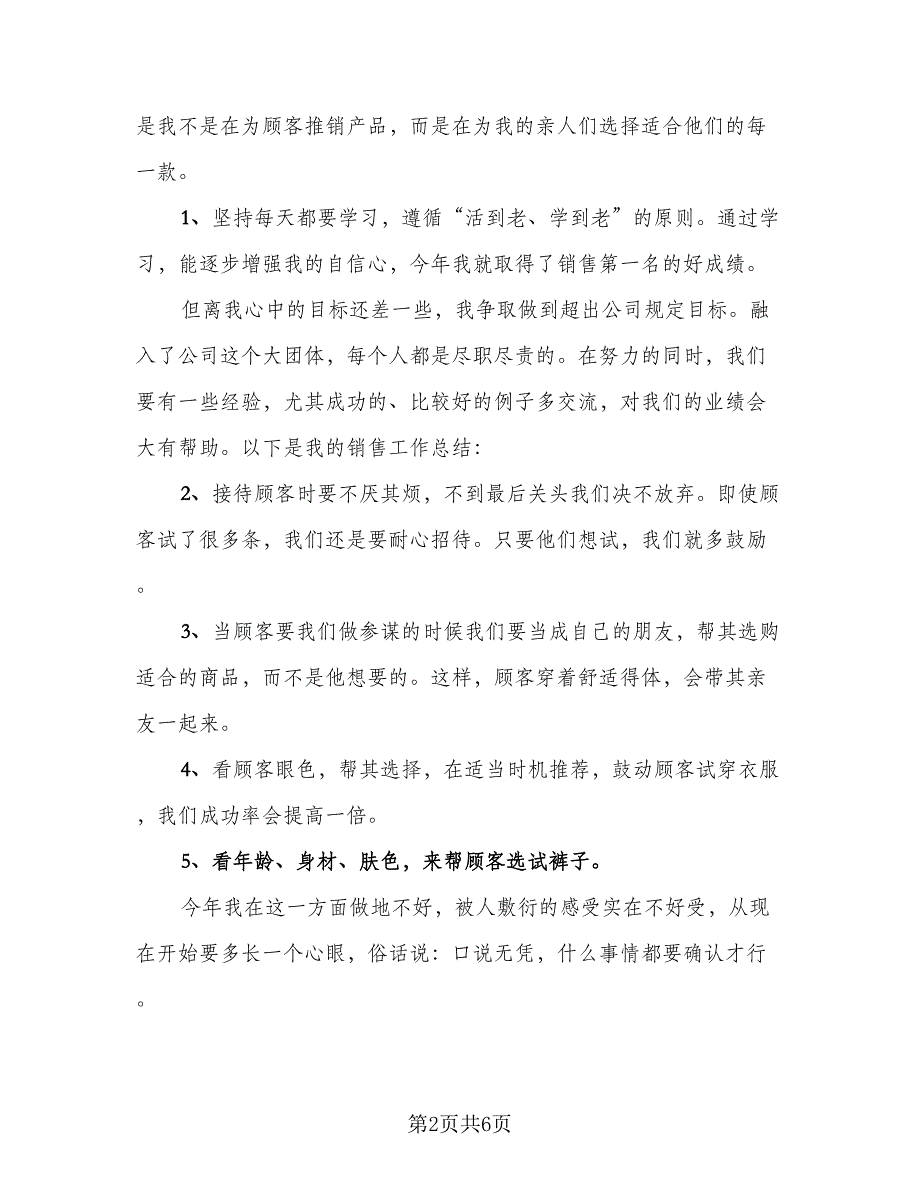 是我不是在为顾客推销产品，而是在为我的亲人们选择适合他们的每
一款。
1、坚持每天都要学习，遵循“活到老、学到老”的原则。通过学
习，能逐步增强我的自信心，今年我就取得了销售第一名的好成绩。
但离我心中的目标还差一些，我争取做到超出公司规定目标。融
入了公司这个大团体，每个人都是尽职尽责的。在努力的同时，我们
要有一些经验，尤其成功的、比较好的例子多交流，对我们的业绩会
大有帮助。以下是我的销售工作总结：
2、接待顾客时要不厌其烦，不到最后关头我们决不放弃。即使顾
客试了很多条，我们还是要耐心招待。只要他们想试，我们就多鼓励
。
3、当顾客要我们做参谋的时候我们要当成自己的朋友，帮其选购
适合的商品，而不是他想要的。这样，顾客穿着舒适得体，会带其亲
友一起来。
4、看顾客眼色，帮其选择，在适当时机推荐，鼓动顾客试穿衣服
，我们成功率会提高一倍。
5、看年龄、身材、肤色，来帮顾客选试裤子。
今年我在这一方面做地不好，被人敷衍的感受实在不好受，从现
在开始要多长一个心眼，俗话说：口说无凭，什么事情都要确认才行
。
第2页共6页